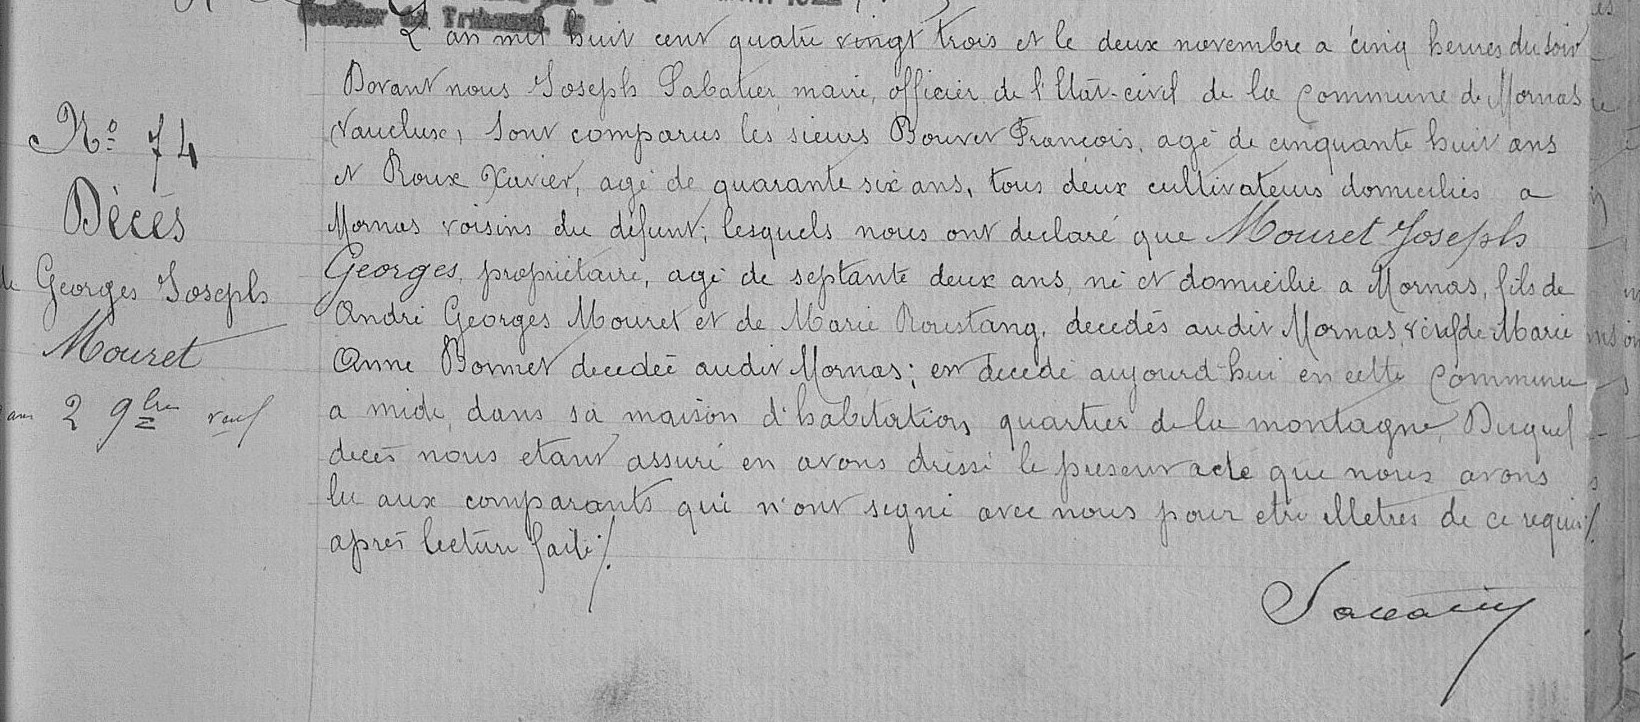 L'an mil huit cent quatre vingt trois et le deux novembre a cinq heures du soir
Devant nous Joseph Sabatier, maire, officier de l'Etat-civil de la Commune de Mornas
(Vaucluse) sont comparus les sieurs Bouvet François, agé de cinquante huit ans
N° 74
et Roux Xavier, agé de quarante six ans, tous deux cultivateurs domiciliés a
Décès
Mornas voisins du défunt; lesquels nous ont declaré que Mouret Joseph
de Georges Joseph
Georges, propriétaire, agé de septante deux ans, né et domicilié a Mornas, fils de
André Georges Mouret et de Marie Roustang, decedés audit Mornas, veuf de Marie
Mouret
Anne Bonnet decedée audit Mornas; est decedé aujourd'hui en cette Commune
ans 2 9bre veuf
a midi, dans sa maison d'habitation, quartier de la montagne, Duquel
decès nous etant assuré en avons dressé le present acte que nous avons
lu aux comparants qui n'ont signé avec nous pour etre illetrés de ce requis
après lecture faite